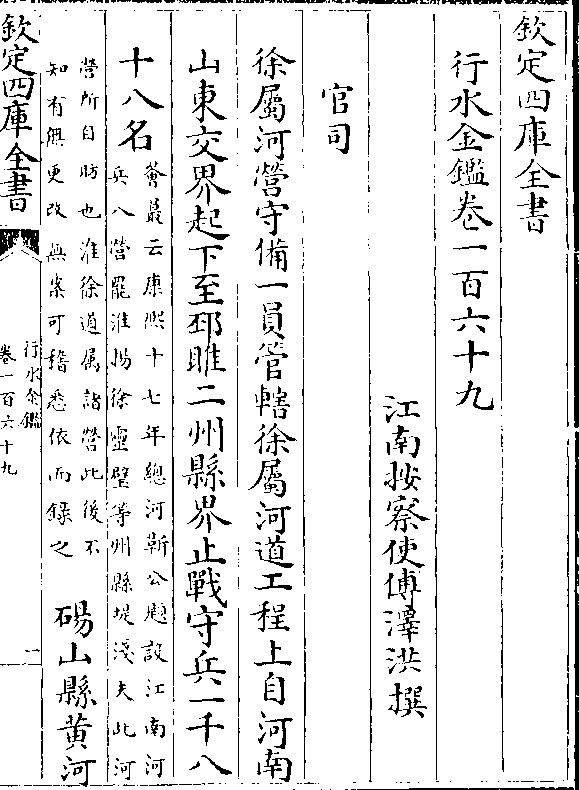 欽定四庫全書
行水金鑑卷一百六十九
江南按察使傅澤洪撰
官司
徐屬河營守備一員管轄徐屬河道工程上自河南
山東交界起下至邳睢二州縣界止戰守兵一千八
十八名
薈蕞云康熙十七年總河靳公題設江南河
兵八營罷淮揚徐靈璧等州縣堤淺夫此河
營所自昉也淮徐道属諸營此後不
知有無更改無案可稽悉依而録之
碭山縣黄河
欽定四庫全書
行水金鑑
卷一百六十九
一